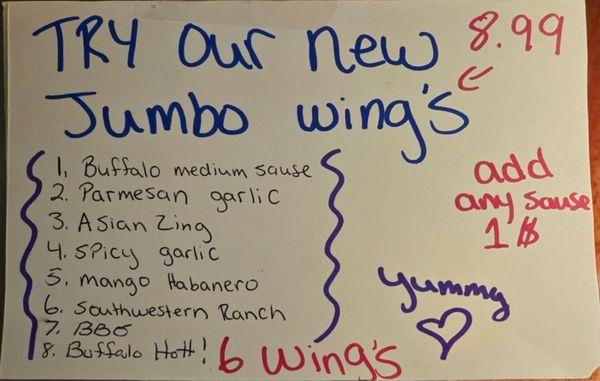 TRY our new
8.99
Jumbo wing's
1, Buffalo medium sause
2. Parmesan garlic
3. Asian Zing
4. Spicy garlic
5. mango Habanero
6. Southwestern Ranch
7. BBG
8. Buffalo Hott!
6 wing's
add
any sause
1 $
yummy